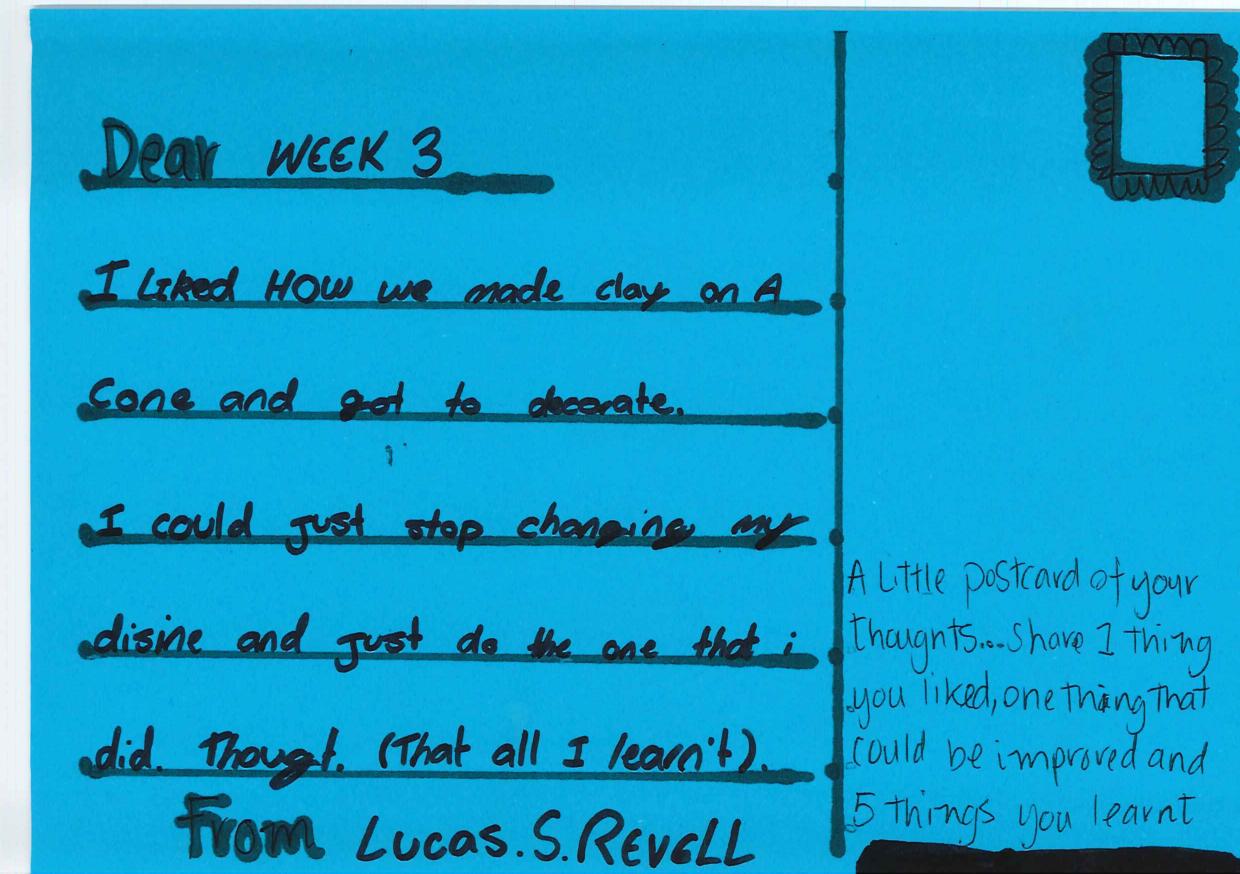 Dear WEEK 3
I Liked HOW we made clay on A
Cone and got to decorate.
I could just stop changing my
disine and just do the one that i
did. Thougt. (That all I learn't).
From Lucas.S.REVELL
A Little postcard of your
thoughts...Share 1 thing
you liked, one thing that
could be improved and
5 things you learnt